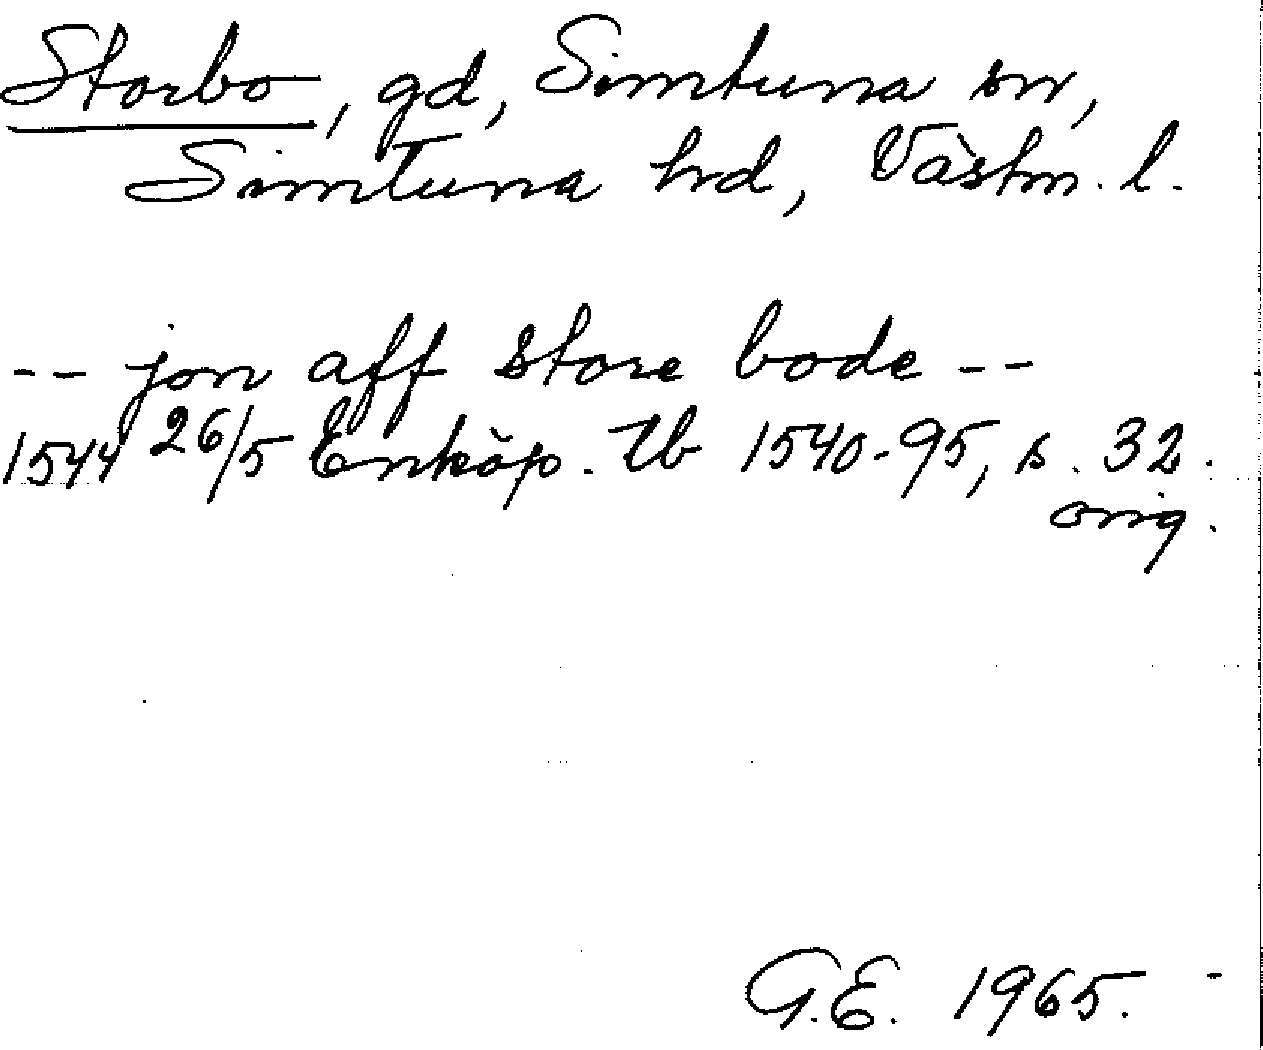 Storbo, gd, Simtuna sn,
Simtuna hd, Västm. l.
-- jon aff store bode --
1544 26/5 Enköp. tb 1540-95, s. 32.
orig.
G.E. 1965.